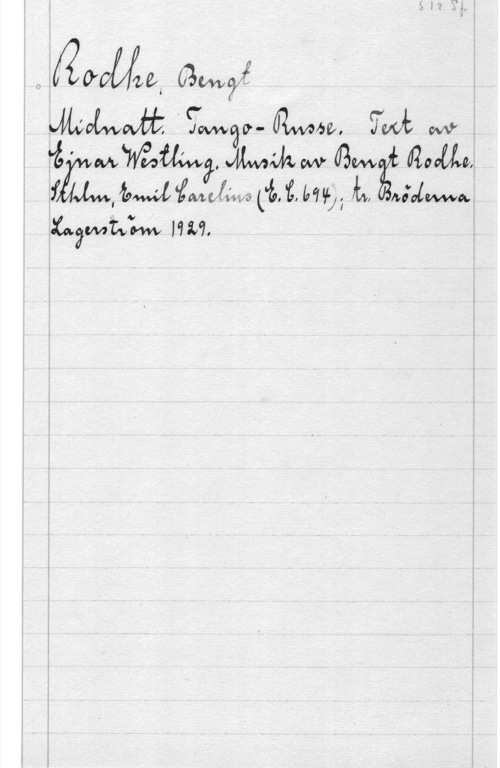 S 1 r. Sf.
Rodhe, Bengt
Midnatt. Tango-Russe. Text av
Ejnar Westling. Musik av Bengt Rodhe.
Sthlm, Emil Carelius (E. C. 694); tr. Bröderna
Lagerström 1929.